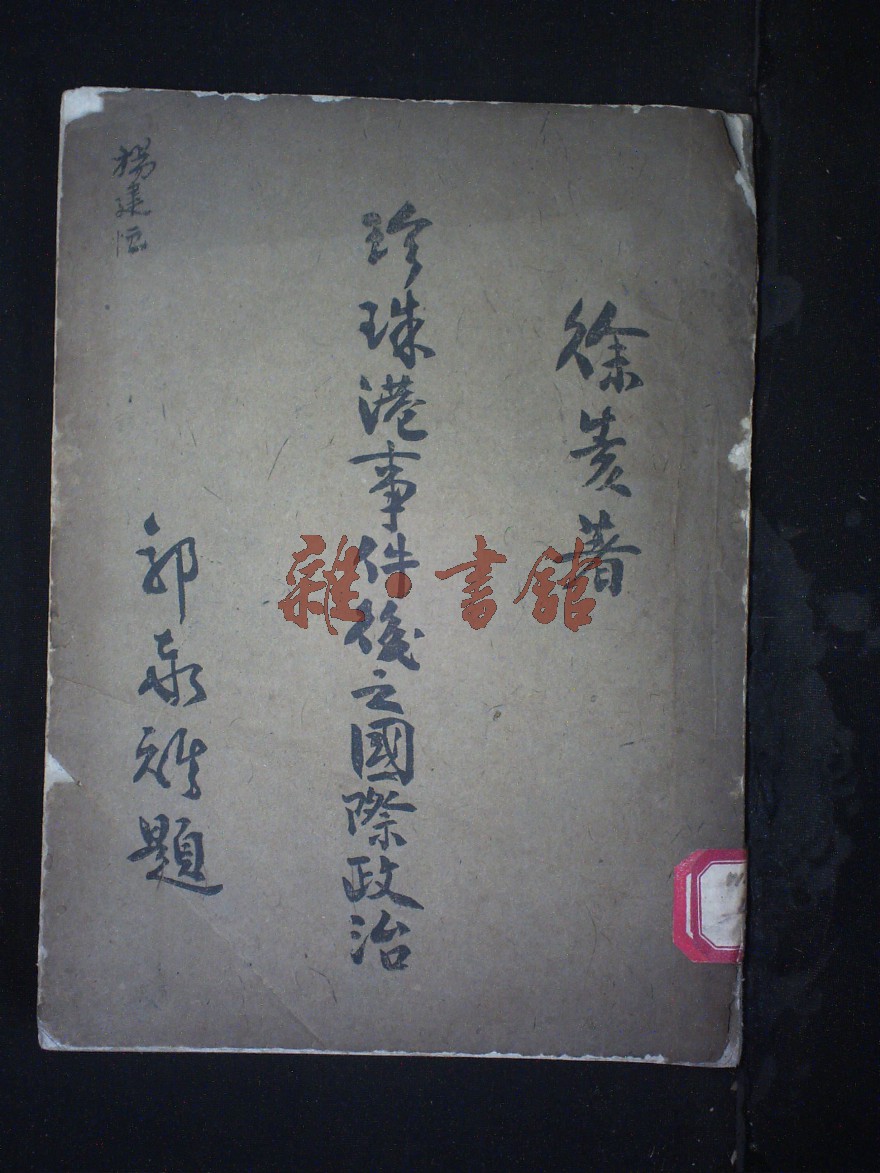 徐责著
珍珠港事件後之國際政治
郭泰祺題
楊建恒
雜·書館